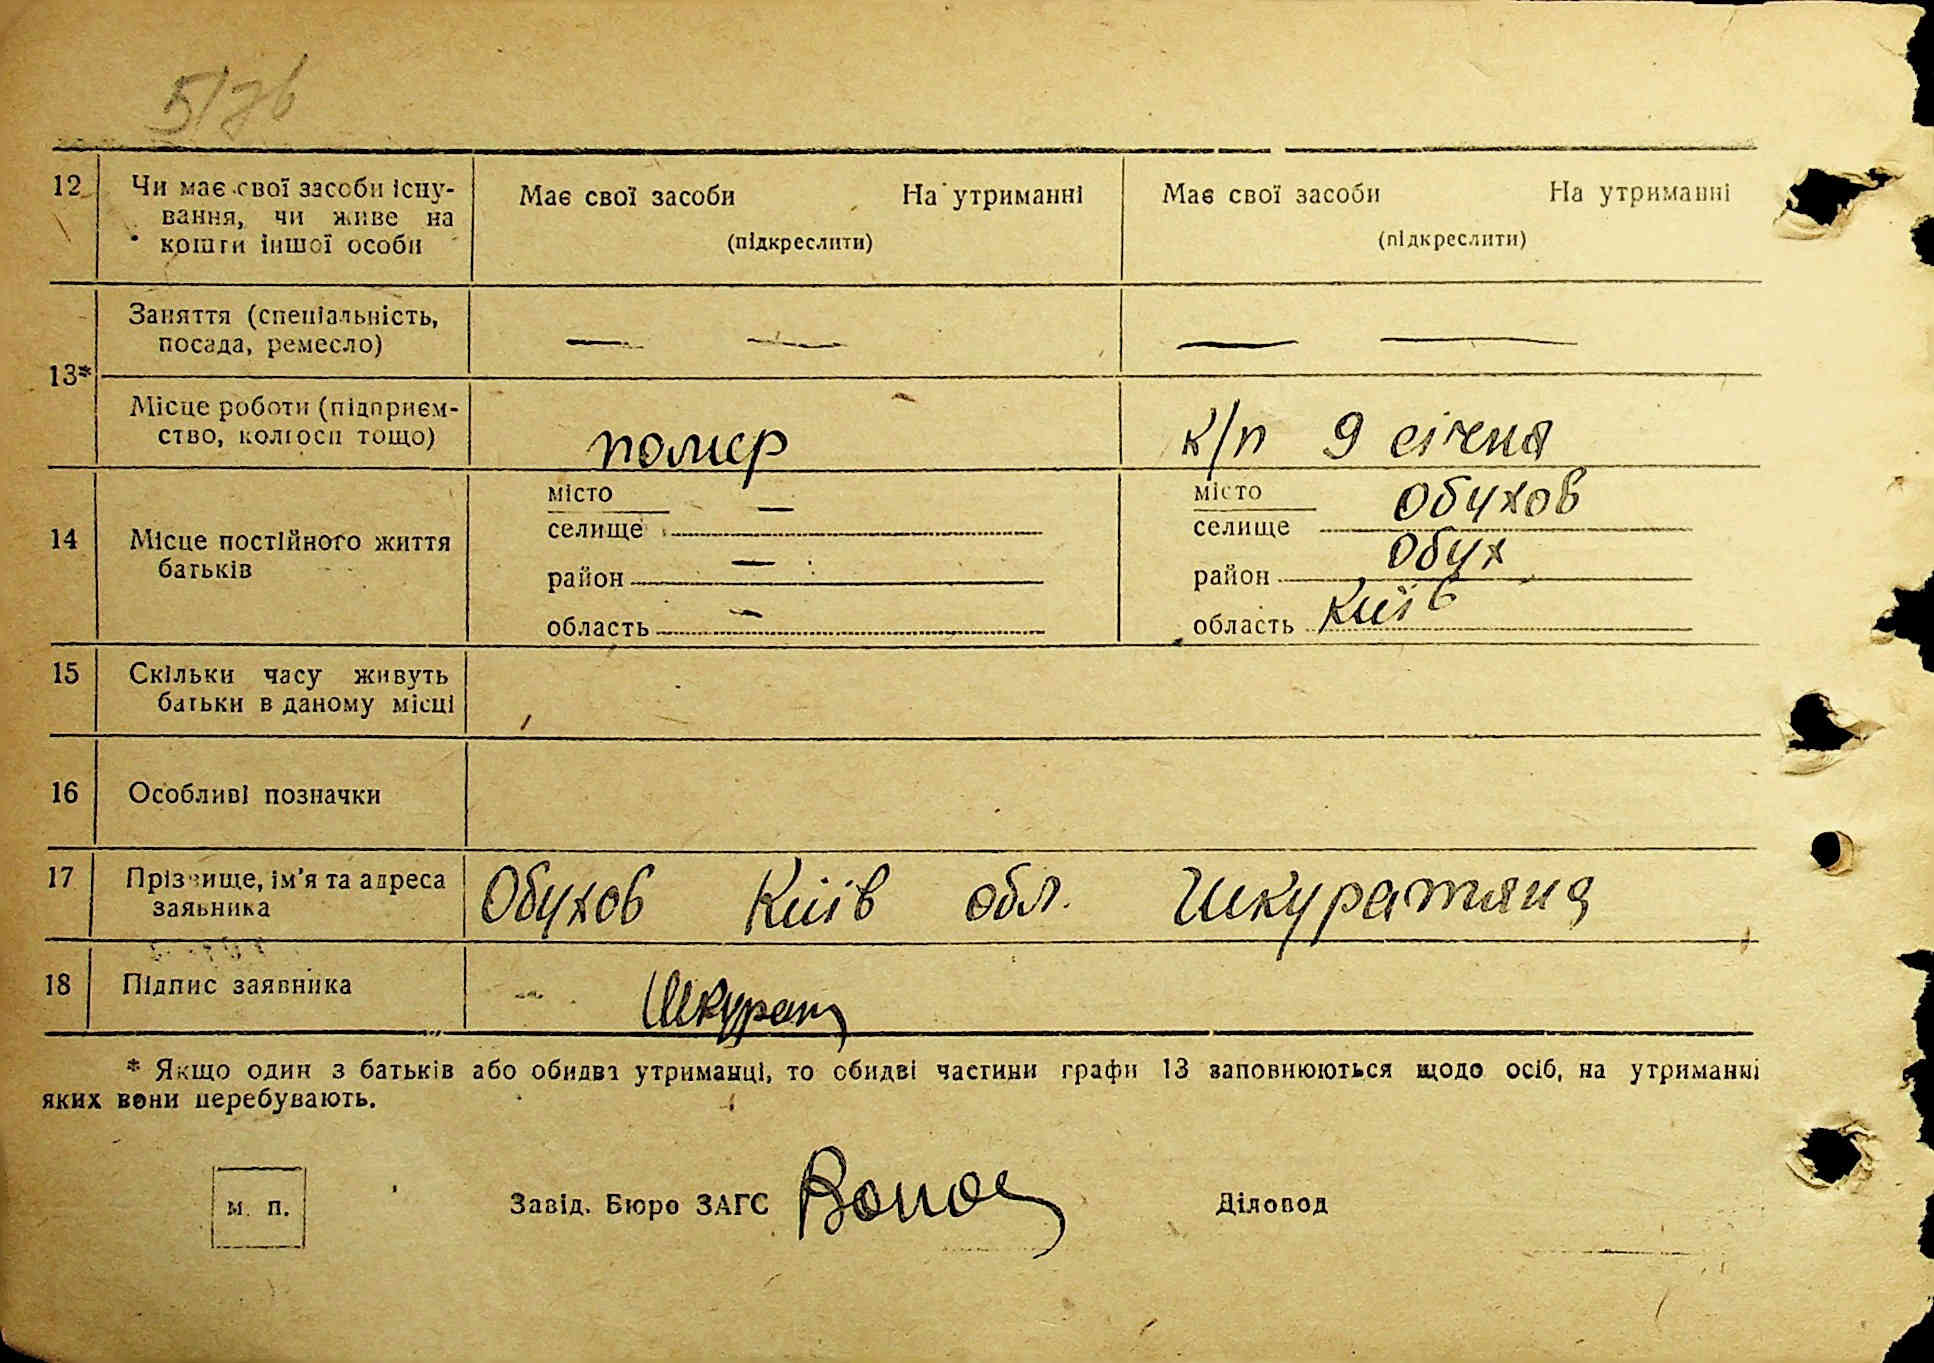 12 Чи має свої засоби існу- Має свої засоби На утриманні Має свої засоби На утриманні
вання, чи живе на
кошти іншої особи (підкреслити) (підкреслити)
Заняття (спеціальність, — — — —
посада, ремесло)
13*
Місце роботи (підприєм-
ство, колгосп тощо) помер к/п 9 січня
місто — місто Обухов
селище селище
14 Місце постійного життя
батьків
район — район Обух
область — область Київ
15 Скільки часу живуть
батьки в даному місці
16 Особливі позначки
17 Прізвище, ім'я та адреса Обухов Київ обл.
заявника
18 Підпис заявника
* Якщо один з батьків або обидва утриманці, то обидві частини графи 13 заповнюються щодо осіб, на утриманні
яких вони перебувають.
м. п. Завід. Бюро ЗАГС Діловод